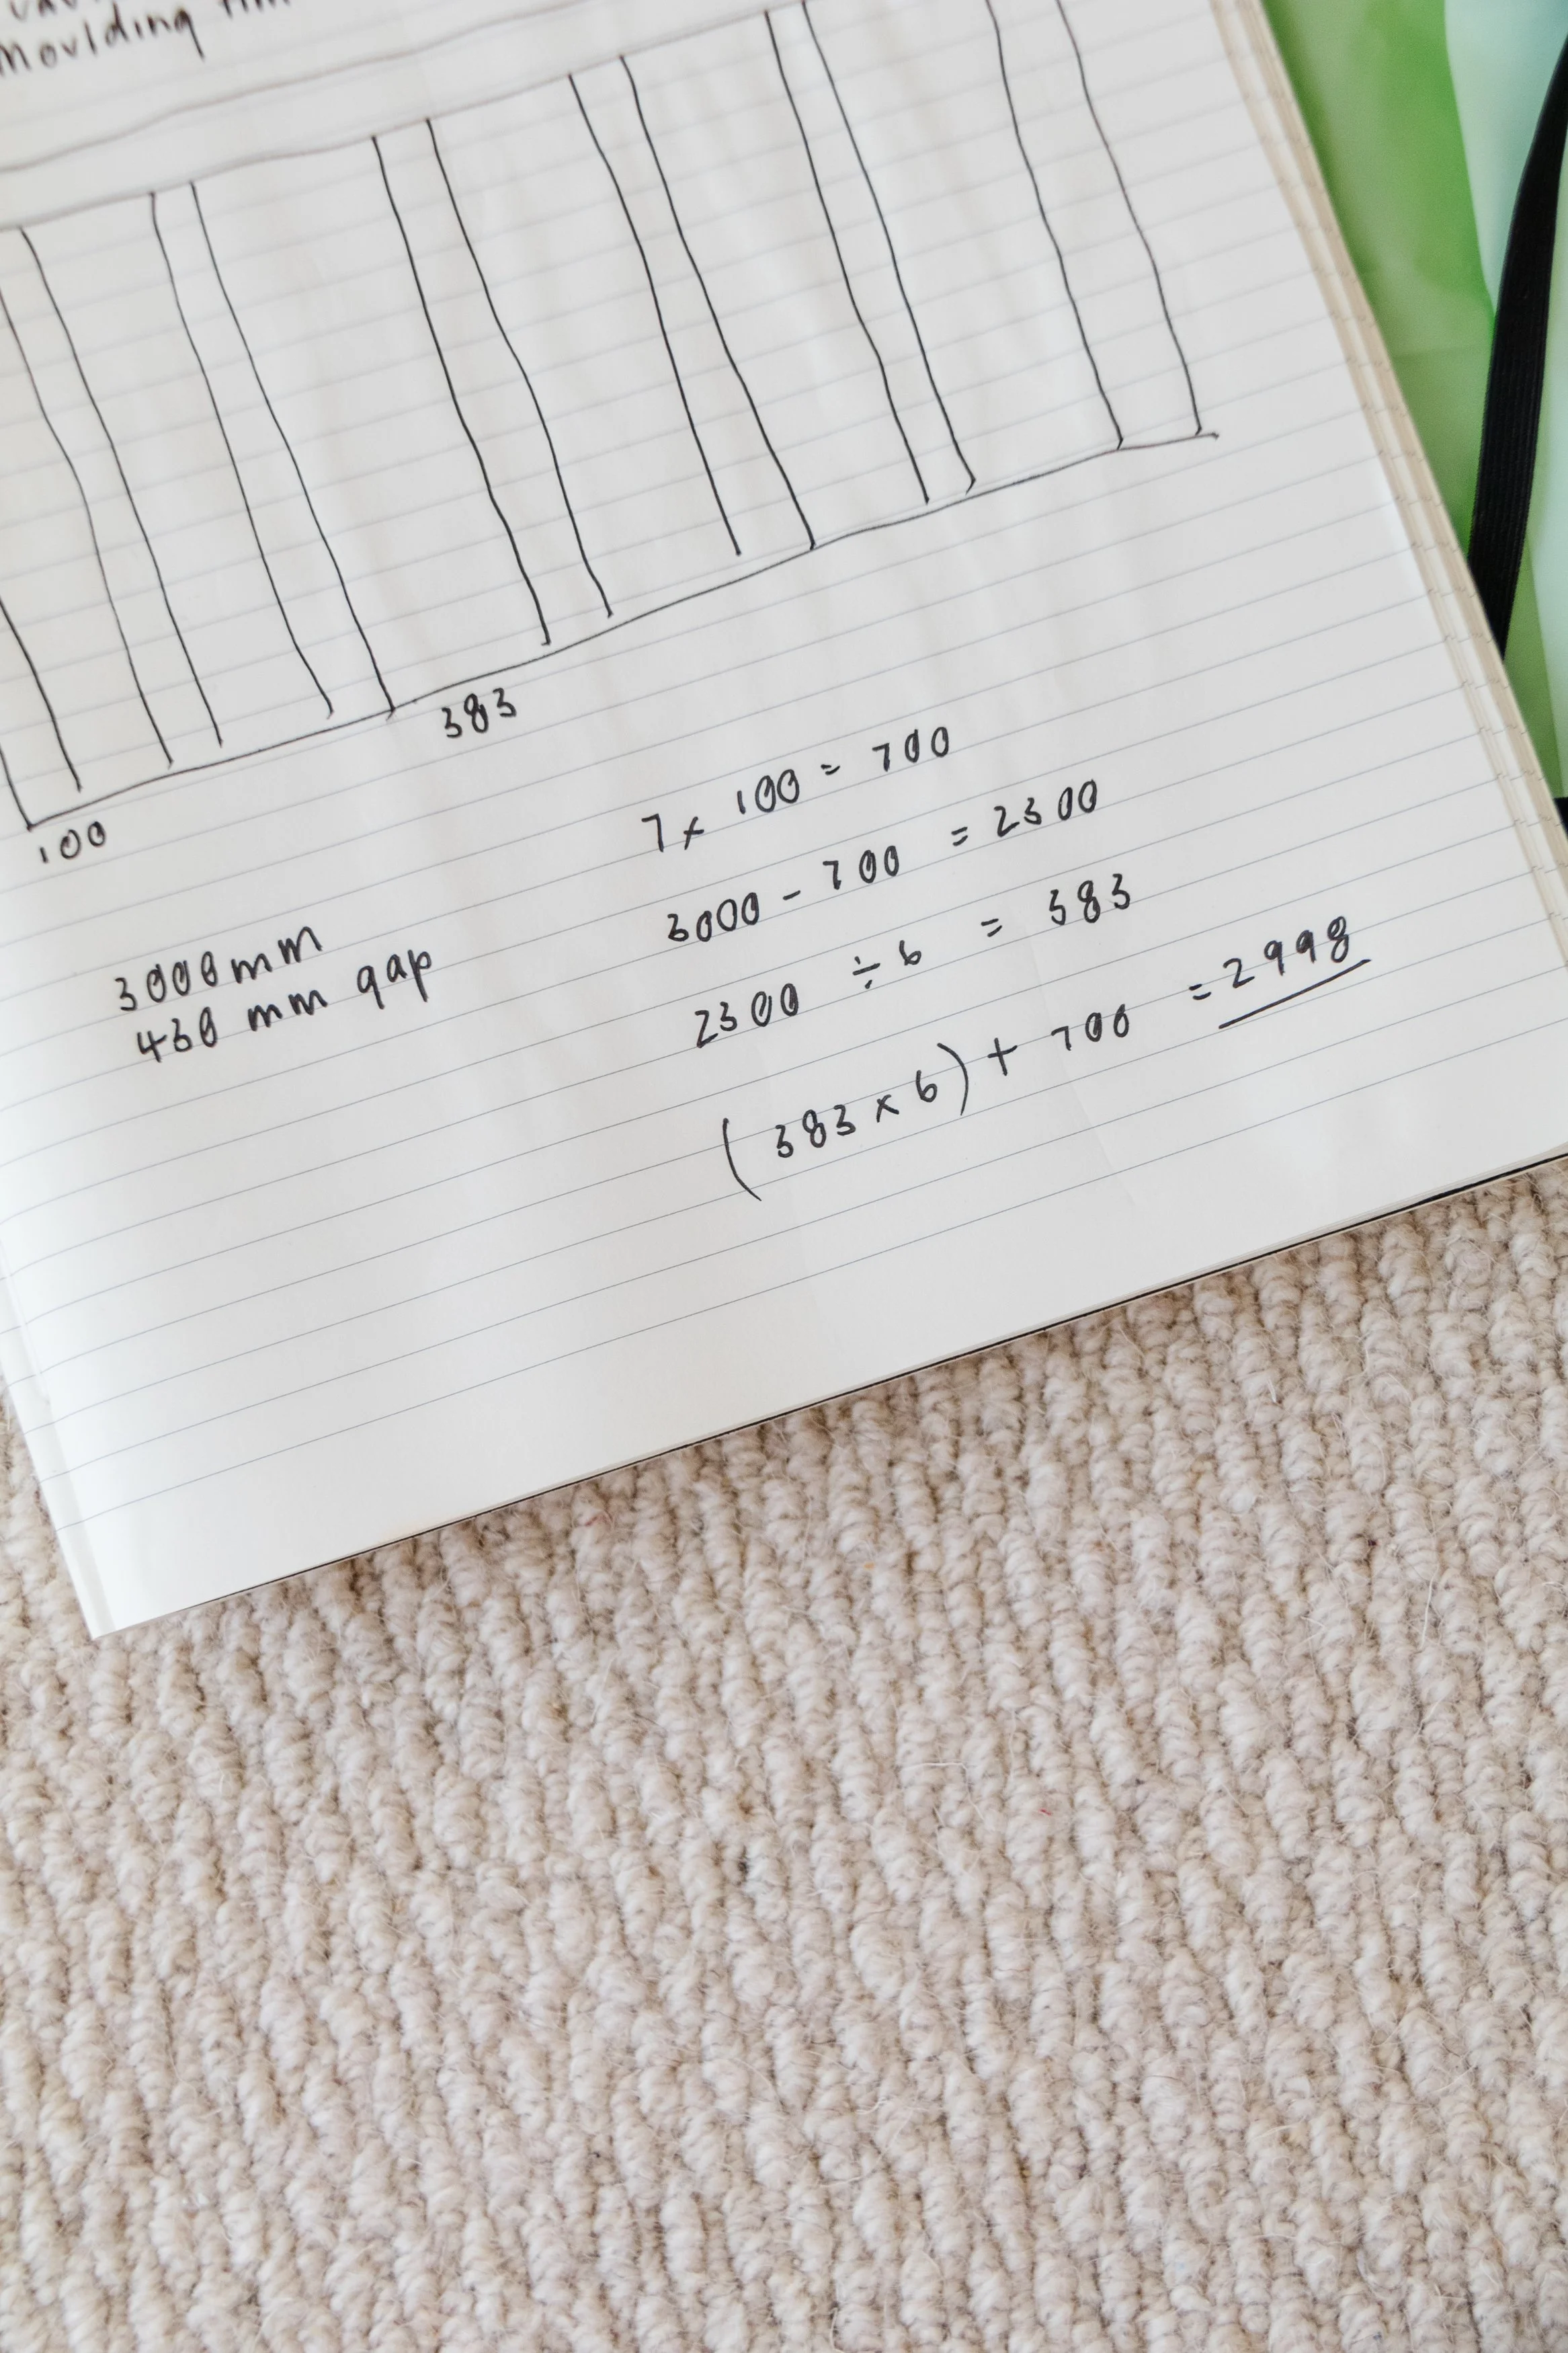 Moulding
383
100
7 x 100 = 700
3000 - 700 = 2300
2300 ÷ 6 = 383
(383 x 6) + 700 = 2998
3000mm
430 mm gap